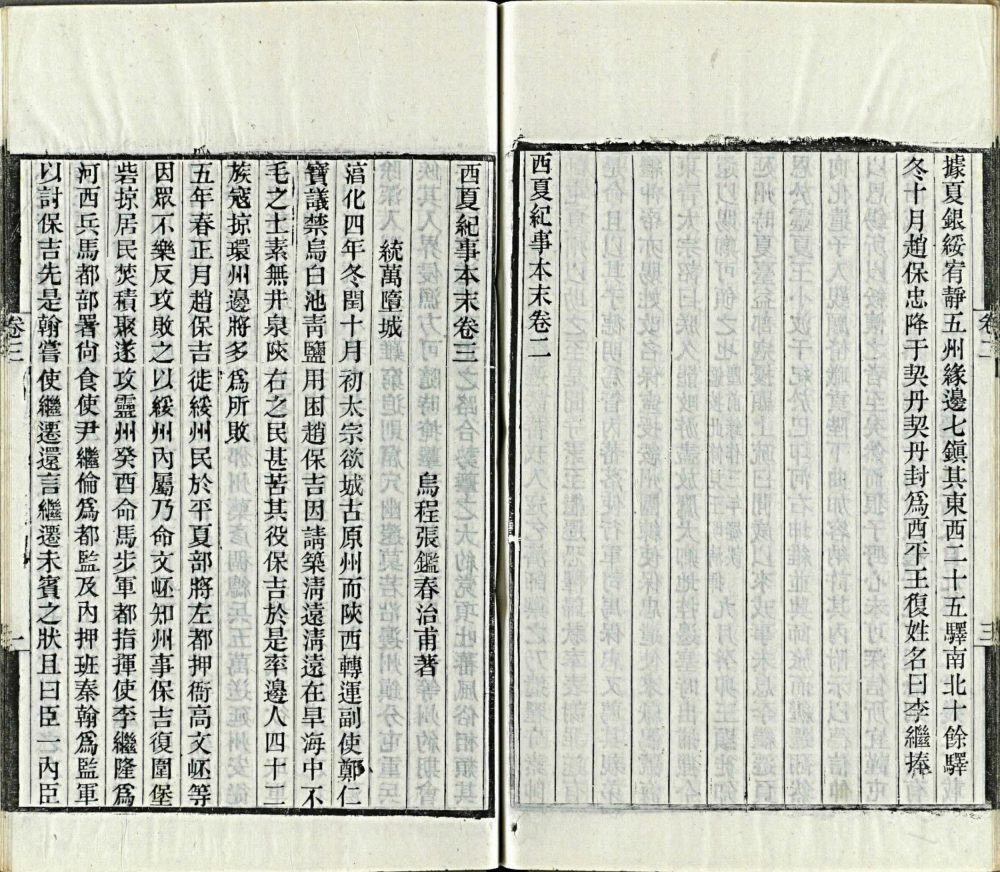 據夏銀綏宥靜五州緣邊七鎮其東西二十五驛南北十餘驛
冬十月趙保忠降于契丹契丹封爲西平王復姓名曰李繼捧
西夏紀事本末卷二
卷二
三
西夏紀事本末卷三
烏程張鑑春治甫著
統萬墮城
淯化四年冬閏十月初太宗欲城古原州而陝西轉運副使鄭仁
寶議禁烏白池靑鹽用困趙保吉因請築淸遠淸遠在旱海中不
毛之土素無井泉陝右之民甚苦其役保吉於是率邊人四十三
族寇掠環州邊將多爲所敗
五年春正月趙保吉徙綏州民於平夏部將左都押衙高文岯等
因眾不樂反攻敗之以綏州內屬乃命文岯知州事保吉復圍堡
砦掠居民焚積聚遂攻靈州癸酉命馬步軍都指揮使李繼隆爲
河西兵馬都部署尙食使尹繼倫爲都監及內押班秦翰爲監軍
以討保吉先是翰嘗使繼遷還言繼遷未賓之狀且曰臣一內臣
卷三
一